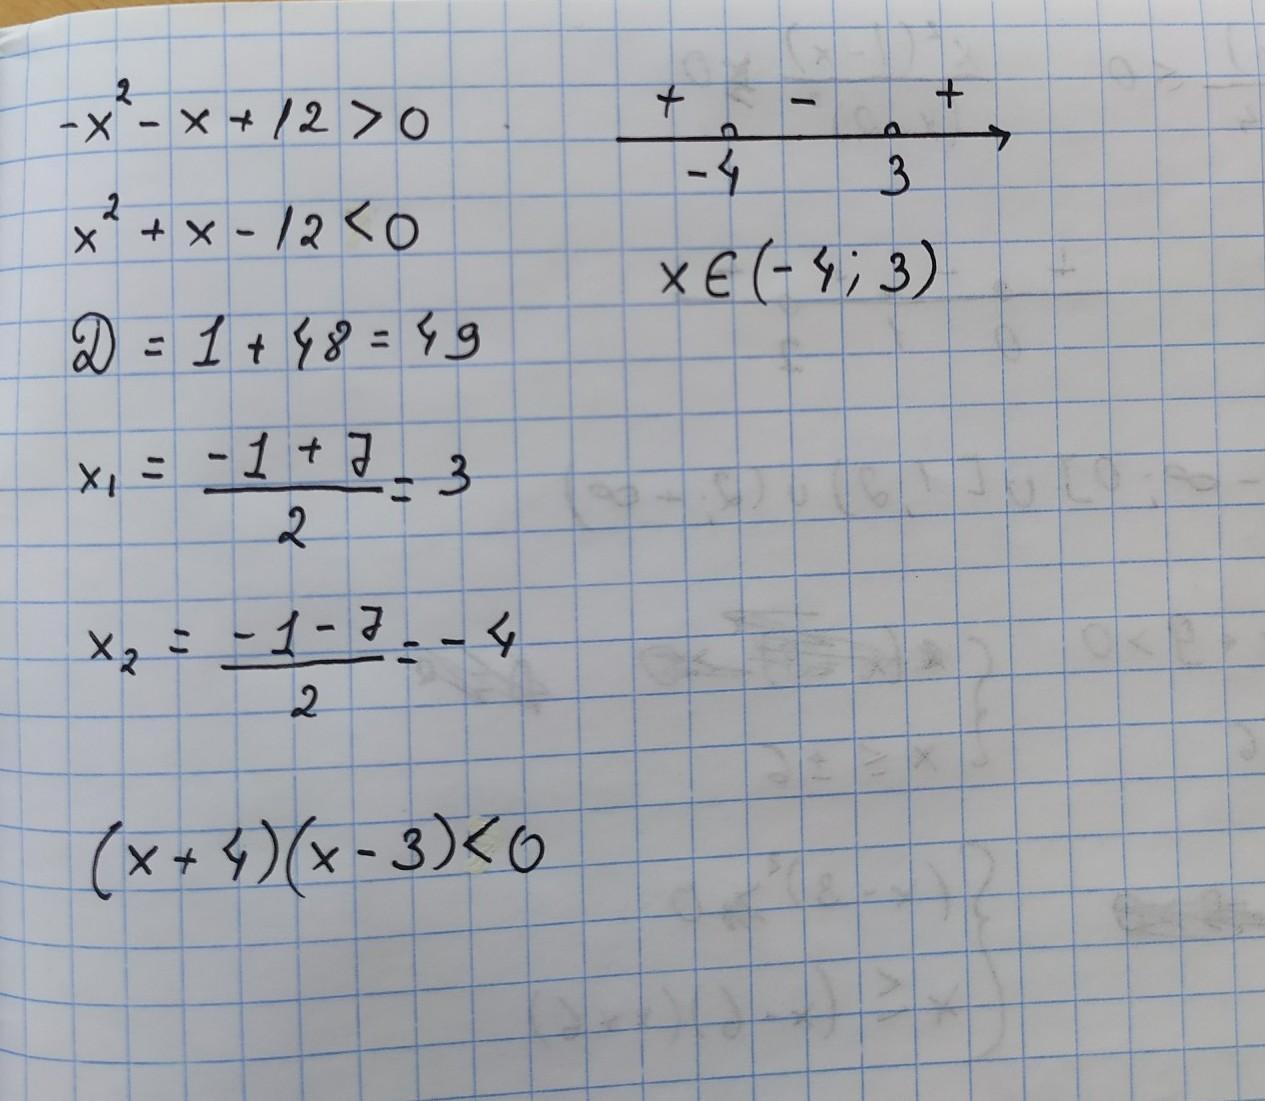 -x² - x + 12 > 0
x² + x - 12 < 0
D = 1 + 48 = 49
x₁ = (-1 + 7)/2 = 3
x₂ = (-1 - 7)/2 = -4
(x + 4)(x - 3) < 0
+ - +
-4 3
x ∈ (-4; 3)